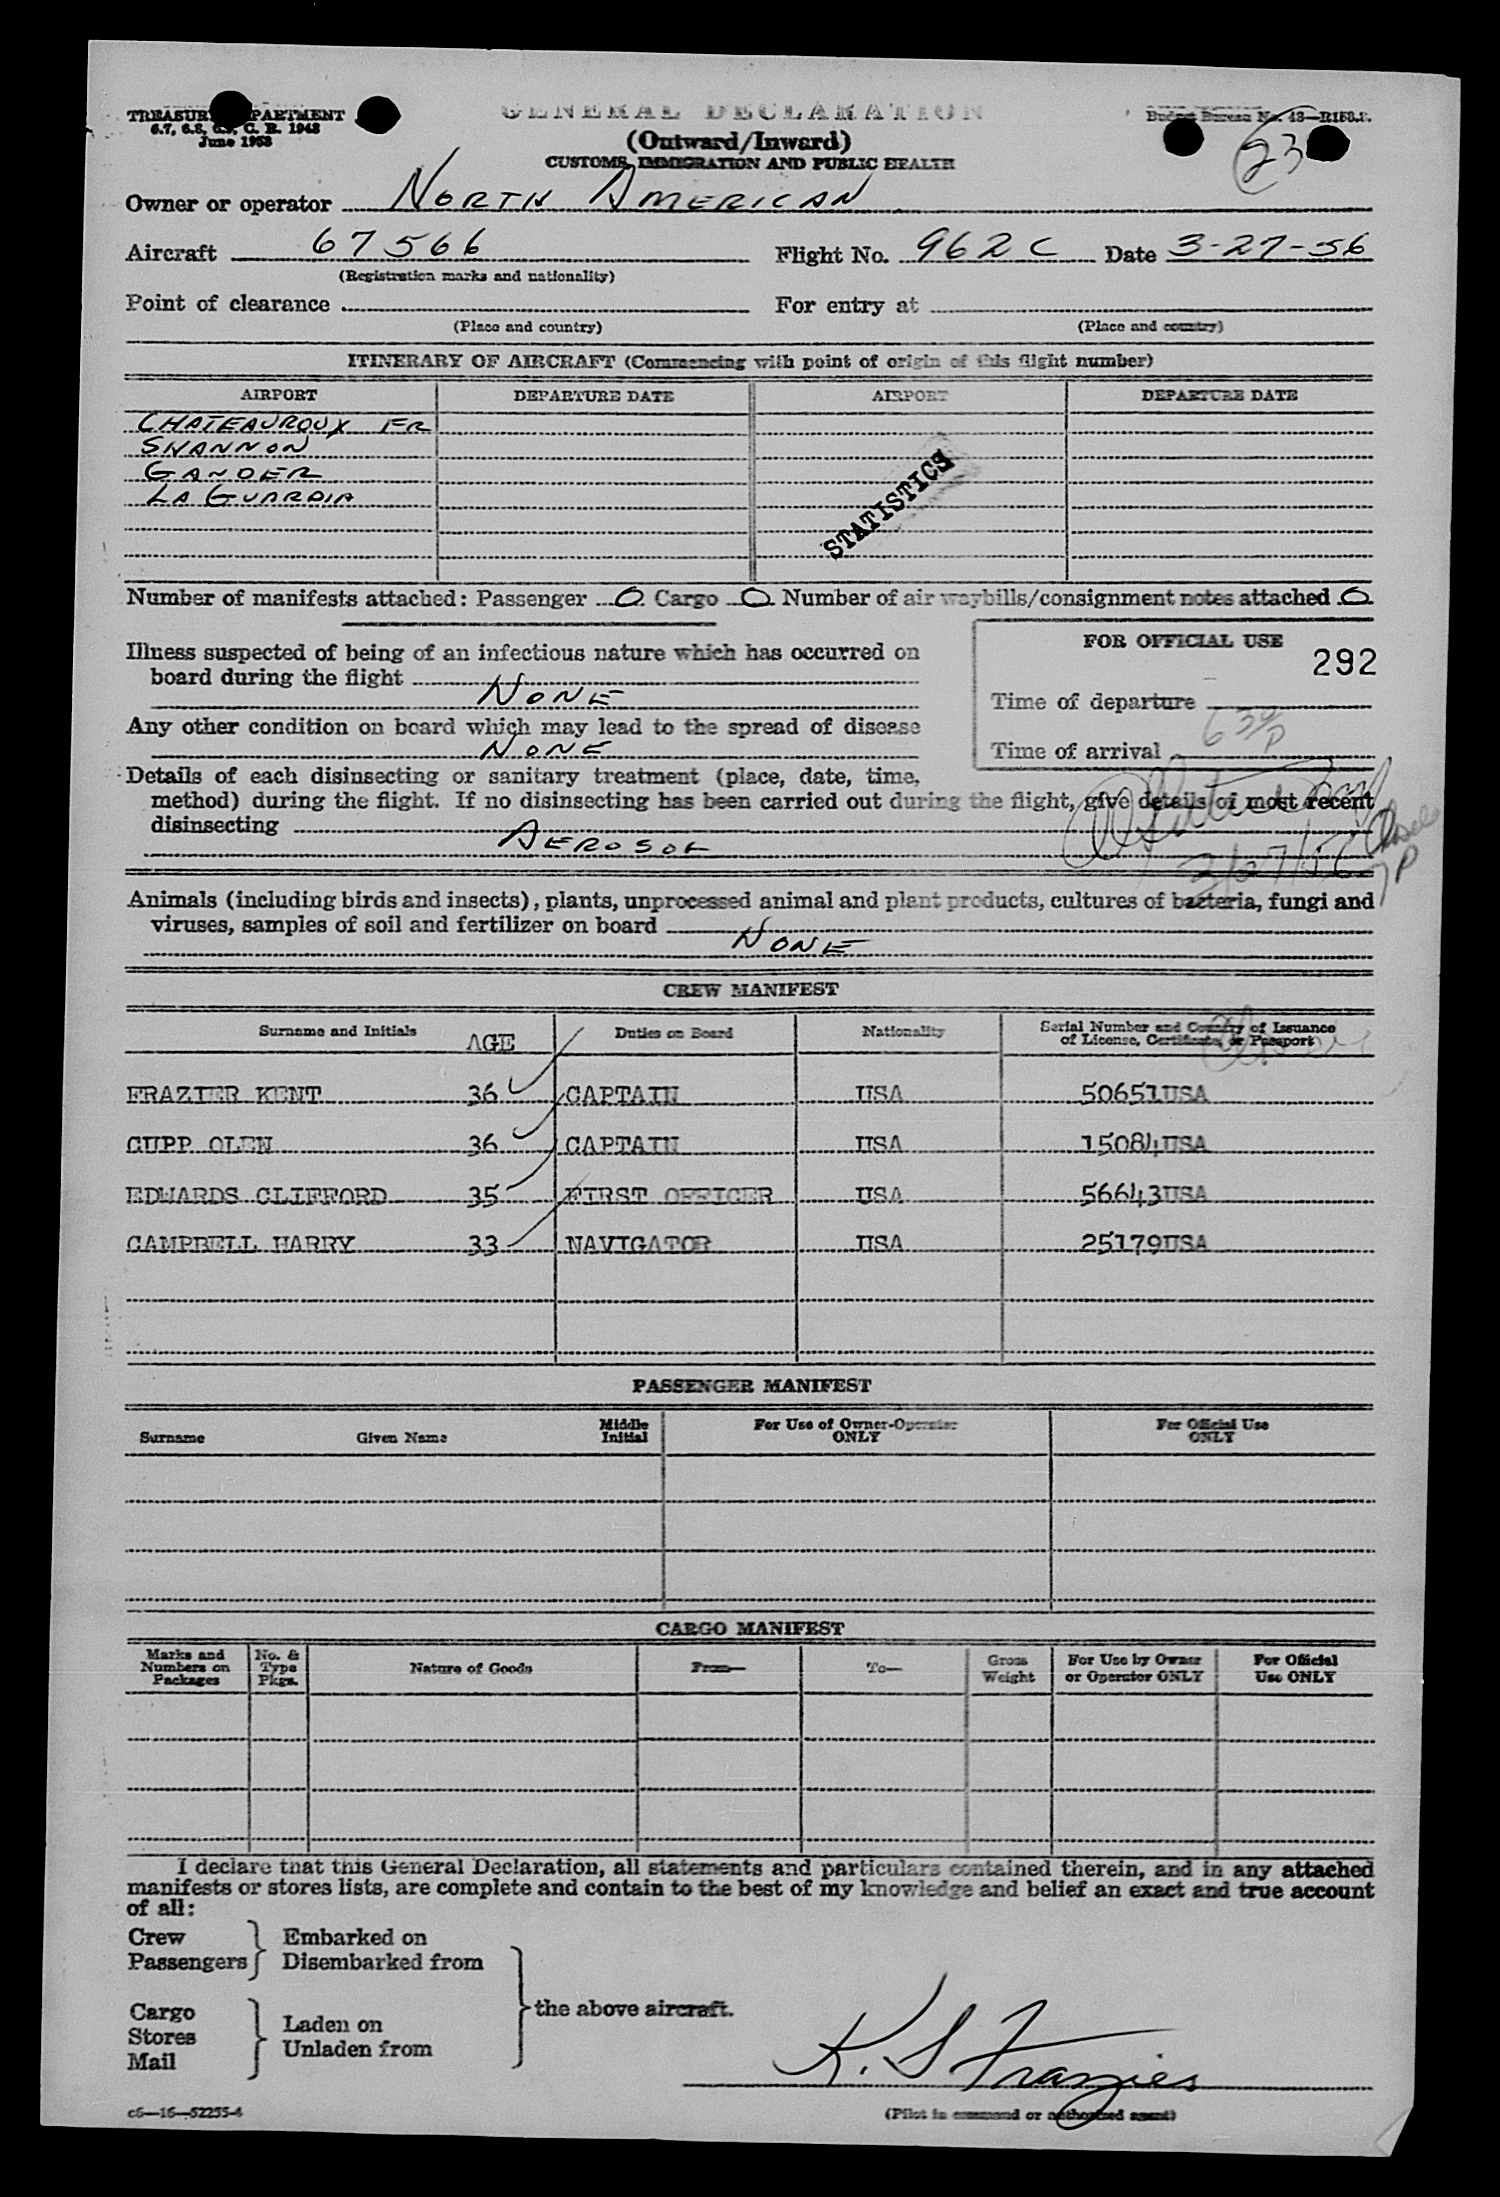 TREASURY DEPARTMENT
6.7, 6.8, 6.9, C. R. 1943
June 1953
GENERAL DECLARATION
(Outward/Inward)
CUSTOMS, IMMIGRATION AND PUBLIC HEALTH
Budget Bureau No. 43—R158.2.
23
Owner or operator NORTH AMERICAN
Aircraft 67566 Flight No. 962C Date 3-27-56
(Registration marks and nationality)
Point of clearance For entry at
(Place and country) (Place and country)
ITINERARY OF AIRCRAFT (Commencing with point of origin of this flight number)
AIRPORT DEPARTURE DATE AIRPORT DEPARTURE DATE
CHATEAUROUX FR
SHANNON
GANDER
LA GUARDIA
STATISTICS
Number of manifests attached: Passenger 0 Cargo 0 Number of air waybills/consignment notes attached 0
Illness suspected of being of an infectious nature which has occurred on
board during the flight
NONE
Any other condition on board which may lead to the spread of disease
NONE
FOR OFFICIAL USE
292
Time of departure
Time of arrival 630P
Details of each disinsecting or sanitary treatment (place, date, time,
method) during the flight. If no disinsecting has been carried out during the flight, give details of most recent
disinsecting
AEROSOL
3/27/56
7P
Animals (including birds and insects), plants, unprocessed animal and plant products, cultures of bacteria, fungi and
viruses, samples of soil and fertilizer on board
NONE
CREW MANIFEST
Surname and Initials AGE Duties on Board Nationality Serial Number and Country of Issuance
of License, Certificate, or Passport
FRAZIER KENT 36 CAPTAIN USA 50651USA
CUPP OLEN 36 CAPTAIN USA 15084USA
EDWARDS CLIFFORD 35 FIRST OFFICER USA 56643USA
CAMPBELL HARRY 33 NAVIGATOR USA 25179USA
PASSENGER MANIFEST
Surname Given Name Middle
Initial For Use of Owner-Operator
ONLY For Official Use
ONLY
CARGO MANIFEST
Marks and
Numbers on
Packages No. &
Type
Pkgs. Nature of Goods From— To— Gross
Weight For Use by Owner
or Operator ONLY For Official
Use ONLY
I declare that this General Declaration, all statements and particulars contained therein, and in any attached
manifests or stores lists, are complete and contain to the best of my knowledge and belief an exact and true account
of all:
Crew Embarked on
Passengers Disembarked from
the above aircraft.
Cargo Laden on
Stores Unladen from
Mail
K. S Frazier
(Pilot in command or authorized agent)
c6—16—52255-4